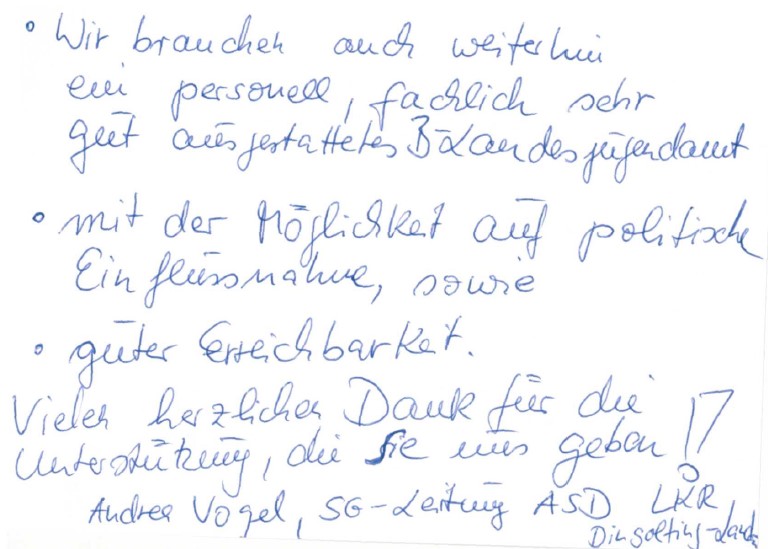 • Wir brauchen auch weiterhin
ein personell, fachlich sehr
gut ausgestattetes B-Landesjugendamt
• mit der Möglichkeit auf politische
Einflussnahme, sowie
• guter Erreichbarkeit.
Vielen herzlichen Dank für die
Unterstützung, die Sie uns geben!
Andrea Vogel, SG-Leitung ASD LKR
Dingolfing-Landau